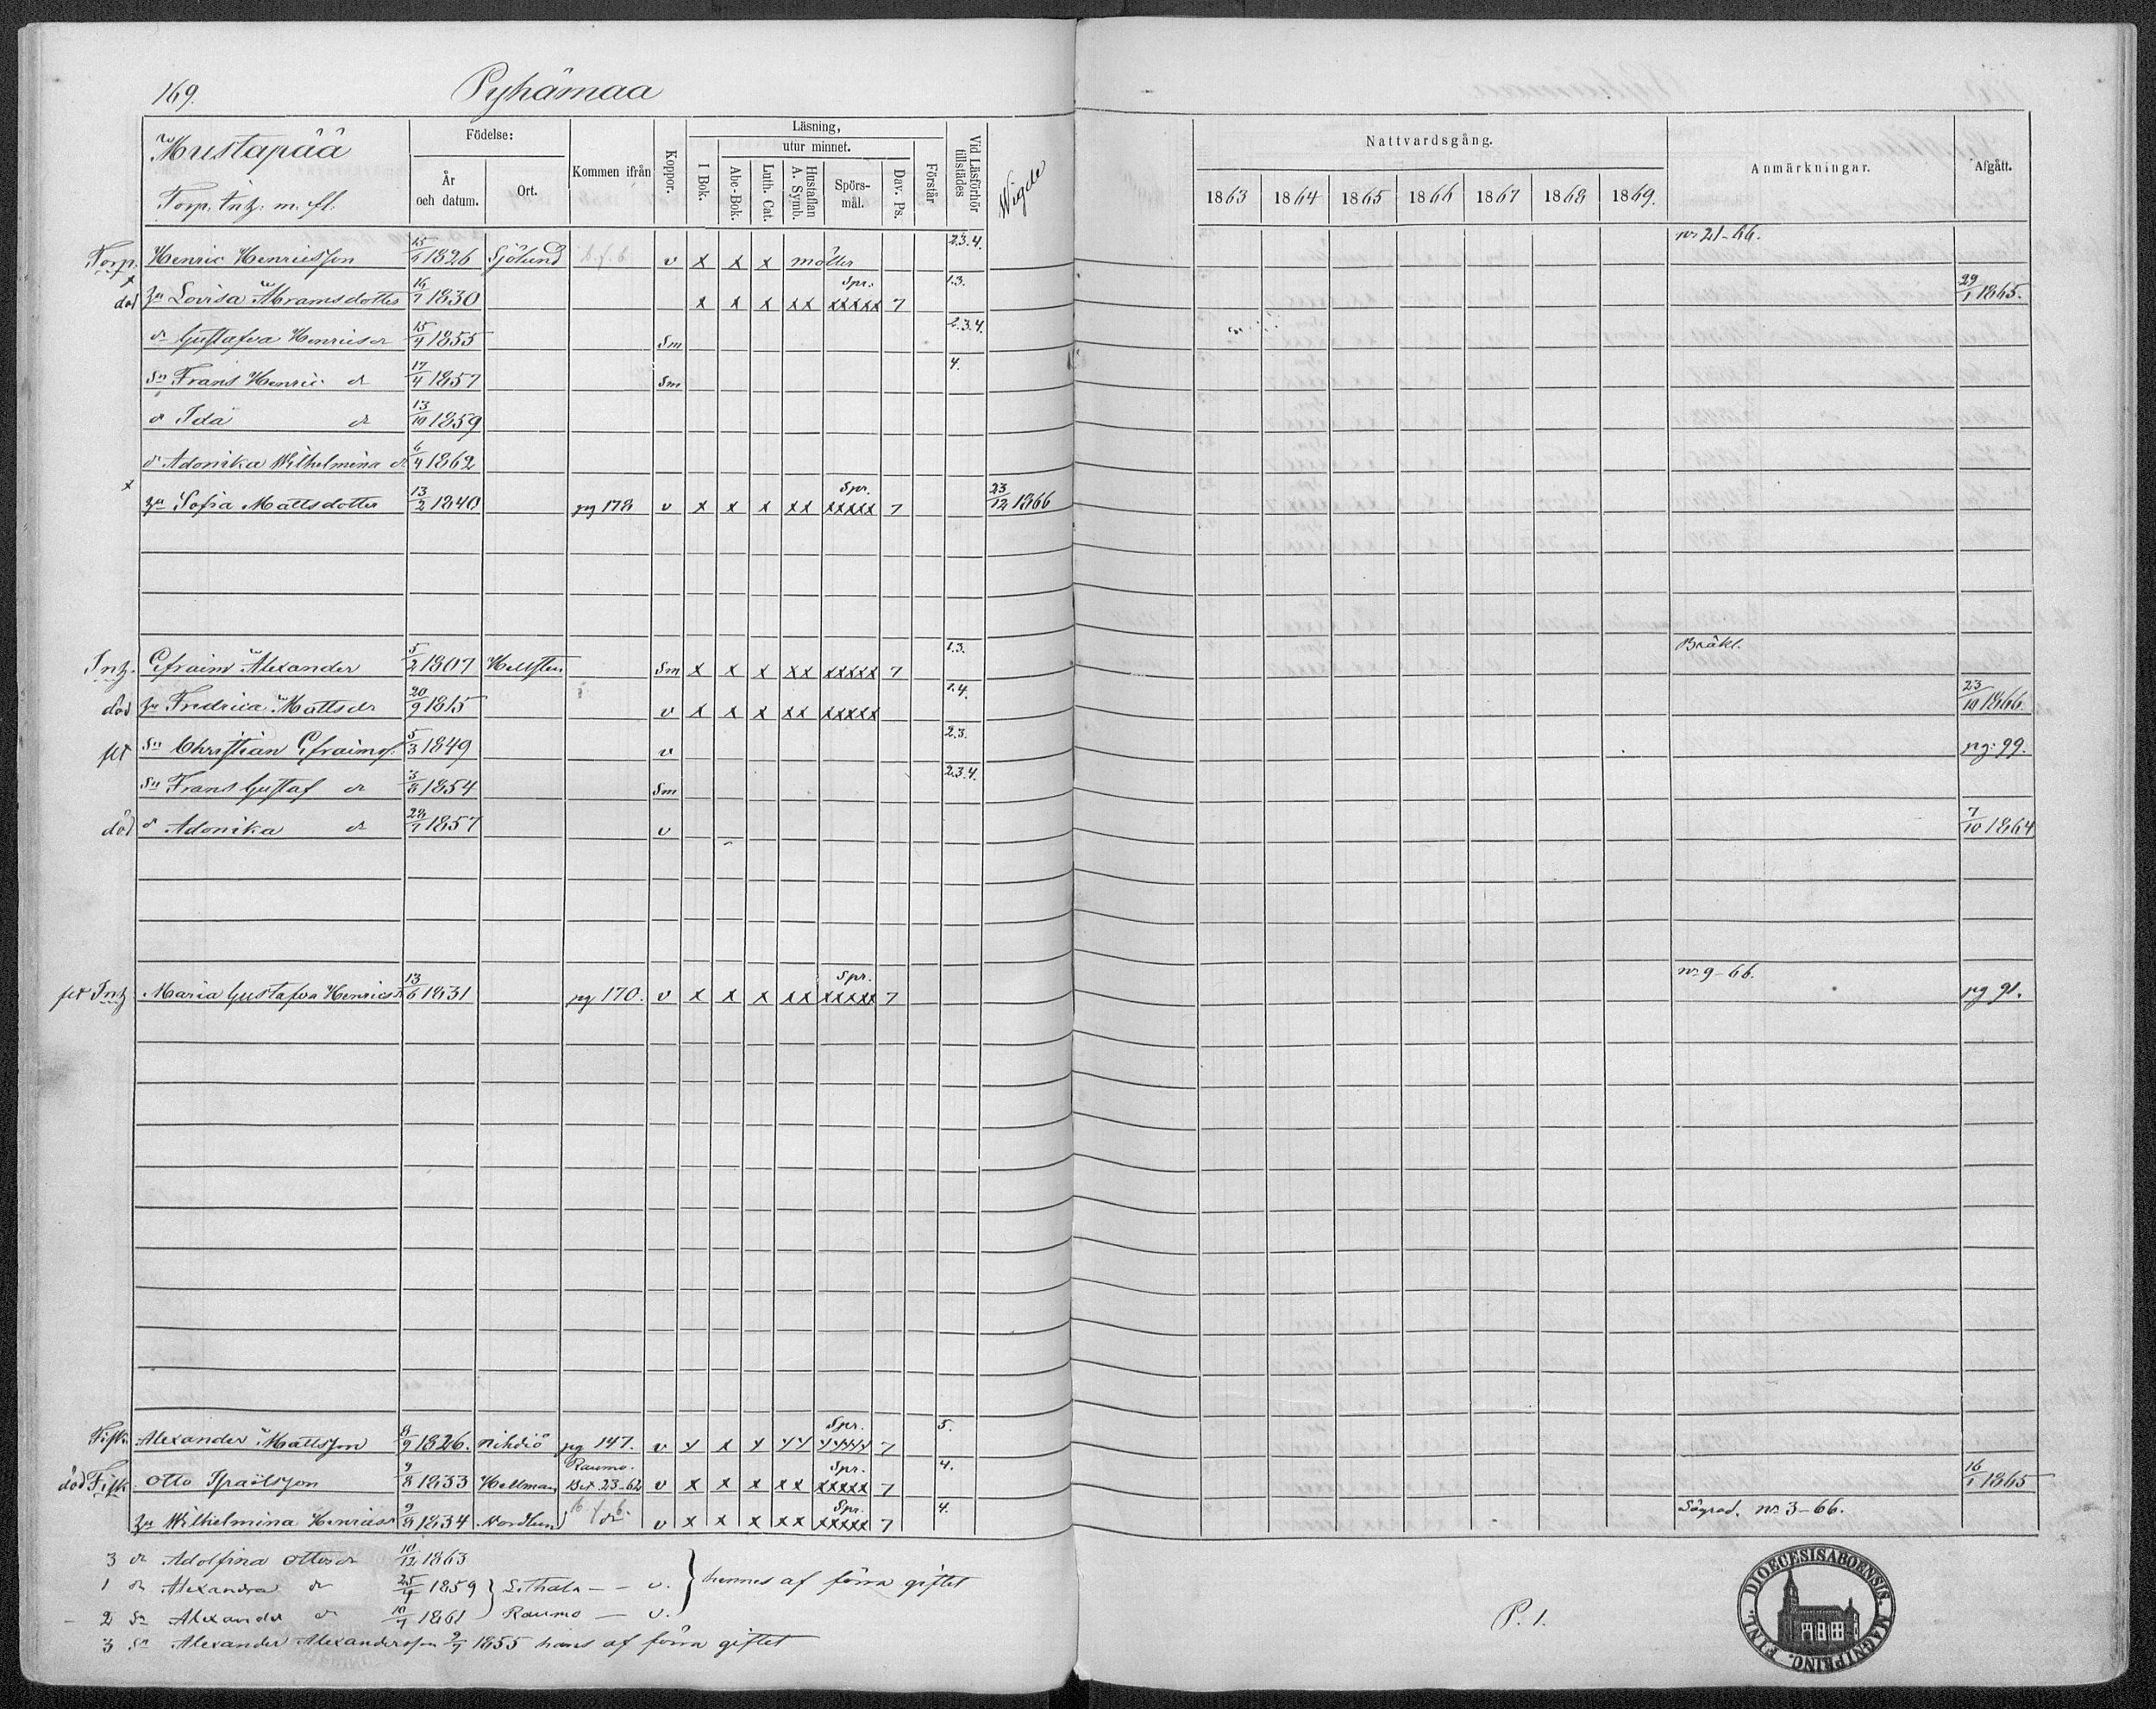 169. Pyhämaa
Mustapää
Torp. Inh. m. fl.
Födelse:
År och datum.
Ort.
Kommen ifrån
Koppor.
Läsning,
I Bok.
utur minnet.
Abc-Bok.
Luth. Cat.
Hustaflan A. Symb.
Spörsmål.
Dav. Ps.
Förstår
Vid Läsförhör tillstädes
Wigde
Nattvardsgång.
1863 1864 1865 1866 1867 1868 1869.
Anmärkningar.
Afgått.
Torp. Henric Henricsson 15/6 1826 Sjölund v x x x 2.3.4. nr 21-66.
död Lovisa Abramsdotter 16/7 1830 x x x xx Spr. xxxxx 7 1.3. 29/1 1865.
dr Gustafva Henricsdr 15/4 1855 Sm 2.3.4.
Sn Frans Henric dr 17/4 1857 Sm 4.
dr Ida dr 13/10 1859
dr Adonika Wilhelmina dr 6/4 1862
Sofia Mattsdotter 13/2 1840 pg 178 v x x x xx Spr. xxxxx 7 23/12 1866
Inh. Efraim Alexander 5/2 1807 Hellsten Sm x x x xx xxxxx 7 1.3. Bräkl.
död Fredrica Mattsdr 20/9 1815 v x x x xx xxxxx 1.4. 23/10 1866.
flt Sn Christian Efraims. 5/3 1849 v 2.3. pg. 99.
Sn Frans Gustaf dr 3/8 1854 Sm 2.3.4.
död dr Adonika dr 28/1 1857 v 7/10 1864
flt Inh. Maria Gustafva Henricsdr 13/6 1831 pg 170. v x x x xx Spr. xxxxx 7 nr 9-66. pg 91.
Fisk. Alexander Mattsson 8/9 1826. pg 147. v x x x xx Spr. xxxxx 7 5.
död Fisk. Otto Israelsson 9/8 1833 Hellman Raumo. Bet. 23-62 v x x x xx Spr. xxxxx 7 4. 16/1 1865
Wilhelmina Henricsdr 1834 Nordlund dr v x x x xx Spr. xxxxx 7 4. nr 3-66.
3 dr Adolfina Ottosdr 10/12 1863
1 dr Alexandra dr 25/4 1859 Lethala — v. hennes af förra giftet
2 Sn Alexander dr 10/1 1861 Raumo — v.
3 Sn Alexander Alexandersson 1855 hans af förra giftet
P. 1.
DIOECESIS ABOENSIS. MAGNI PRINC. FINL.